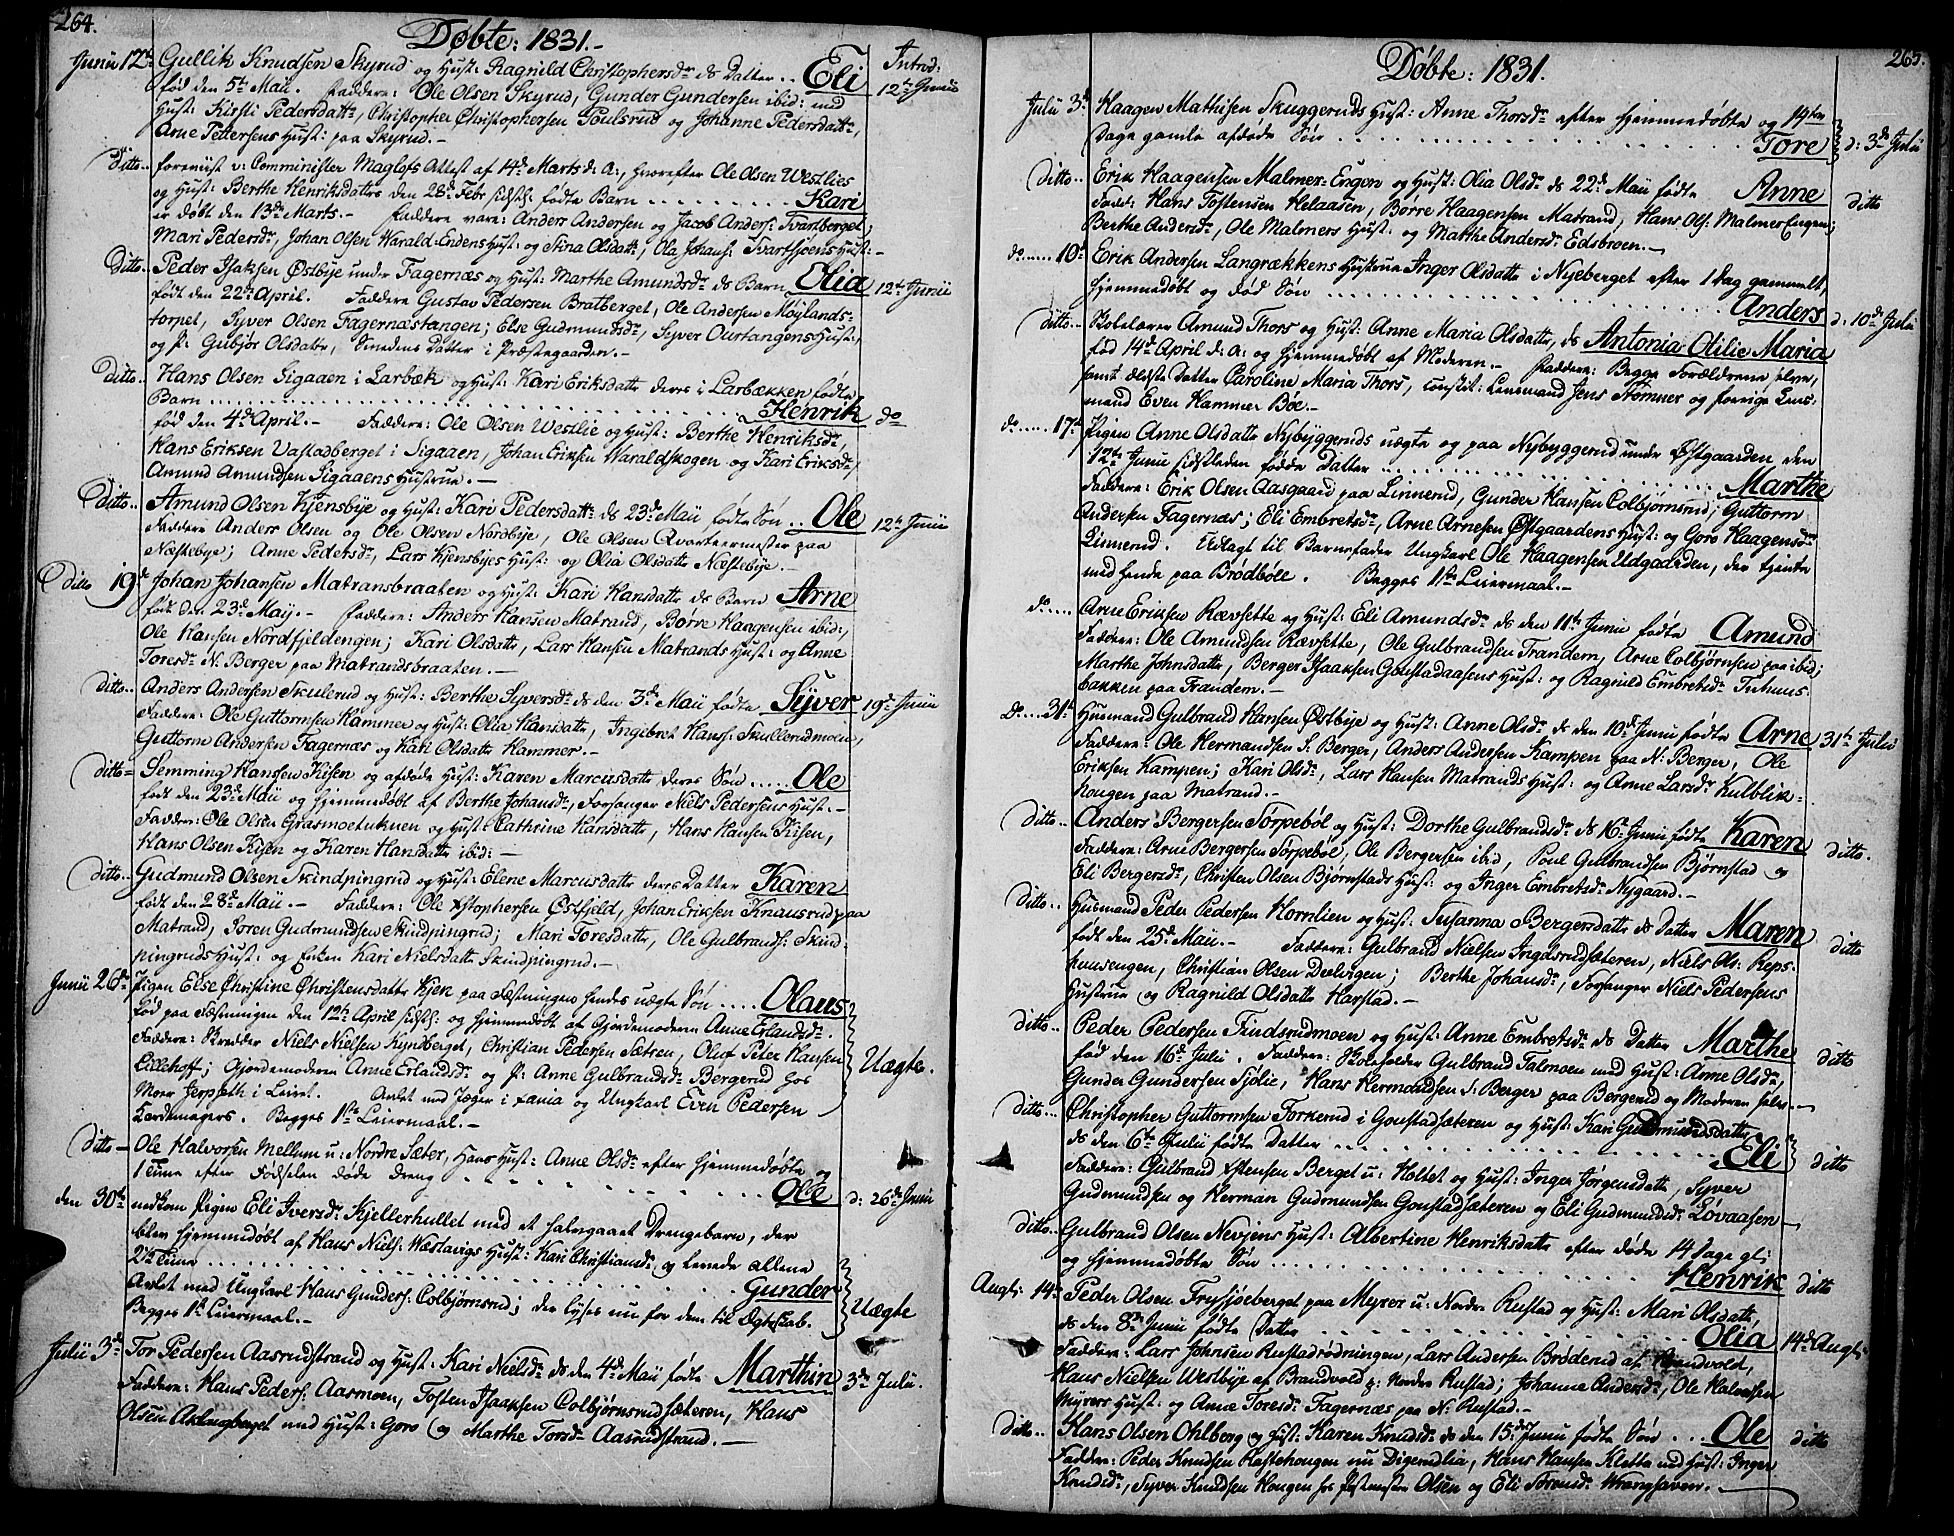 264.
Døbte: 1831.-
Introd:
Junii 12te Gullik Knudsen Skyrud og Hust: Ragnild Christophersdr ds Datter .. Eli
født den 5te Maii. Faddere: Ole Olsen Skyrud, Gunder Gundersen ibid: med 12te Junii
Hust: Kirsti Pedersdattr, Christopher Christophersen Poulsrud og Johanne Pedersdattr,
Arne Pettersens Hust: paa Skyrud.-
Ditto.. foreviist v: Comminister Maglofs Attest af 14de Marts d: A:, hvorefter Ole Olsen Westlies
og Hust: Berthe Henriksdattrs den 28de Febr sidstl: fødte Barn ......... Kari
er døbt den 13de Marts.- Faddere vare: Anders Andersen og Jacob Anders: Svartberget;
Mari Pedersdr, Johan Olsen Warald-Endens Hust: og Stina Olsdattr, Ola Johans: Svartsjoens Hust:-
Ditto.. Peder Isaksen Østbye under Fagernæs og Hust: Marthe Amundsdr ds Barn Olia 12te Junii
født den 22de April. Faddere Gustav Pedersen Bratberget, Ole Andersen Møylands-
torpet, Syver Olsen Fagernæstangen; Else Gudmundsdr, Syver Ourtangens Hust:,
og P: Gubjør Olsdattr, Smedens Datter i Præstegaarden.-
Ditto.. Hans Olsen Sigaaen i Larbæk og Hust: Kari Eriksdattr deres i Larbækken fødte
Barn ........................ Henrik do
født den 4de April.- Faddere: Ole Olsen Westlie og Hust: Berthe Henriksdr,
Hans Eriksen Vastadberget i Sigaaen, Johan Eriksen Waraldskogen og Kari Eriksdr,
Amund Amundsen Sigaaens Hustrue.-
Ditto.. Amund Olsen Kjensbye og Hust: Kari Pedersdattr ds 23de Maii fødte Søn .. Ole 12te Junii
Faddere Anders Olsen og Ole Olsen Nordbye, Ole Olsen Qvarteermester paa
Næstebye; Anne Pedersdr, Lars Kjensbyes Hust: og Olia Olsdattr Næstebye.-
Ditto 19de Johan Johansen Matransbraaten og Hust: Kari Hansdattr ds Barn Arne
født den 23de May.- Faddere: Anders Hansen Matrand, Børre Haagensen ibid:,
Ole Hansen Nordfjeldengen; Kari Olsdattr, Lars Hansen Matrands Hust: og Anne
Toresdr N. Berger paa Matrandsbraaten.-
Ditto.. Anders Andersen Skulerud og Hust: Berthe Syversdr ds den 3de Maii fødte Syver 19de Junii
Faddere: Ole Guttormsen Hammer og Hust: Olia Hansdattr, Ingibret Hans: Skullerudmoen,
Guttorm Andersen Fagernæs og Kari Olsdattr Hammer.-
Ditto= Semming Hansen Kisen og afdøde Hust: Karen Marcusdattr deres Søn ..... Ole
født den 23de Maii og hjemmedøbt af Berthe Johansdr, Forsanger Niels Pedersens Hust:-
Faddere: Ole Olsen Grasmoetuknen og Hust: Cathrine Hansdattr, Hans Hansen Kisen,
Hans Olsen Kisen og Karen Hansdattr ibid:-
Ditto.. Gudmund Olsen Skindpingrud og Hust: Elene Marcusdattr deres Datter Karen
født den 28de Maii.- Faddere: Ole Xstophersen Østfjeld, Johan Eriksen Knausrud paa
Matrand, Soren Gudmundsen Skindpingrud; Mari Toresdattr, Ole Gulbrands: Skind-
pingruds Hust: og Enken Kari Nielsdattr Skindpingrud.-
Junii 26de Pigen Else Christine Christensdattr Kjek paa Fæstningen hendes uægte Søn .... Olaus
Fød paa Fæstningen den 12te April sidstl: og hjemmedøbt af Gjordemoderen Anne Erlandsdr.
Faddere: Skrædder Niels Nielsen Kyndberget, Christian Pedersen Sætren, Oluf Peter Hansen
Lillehoff; Gjordemoderen Anne Erlandsdr og P: Anne Gulbrandsdr Bergerud hos Uægte.
Moer Jerpseth i Leiret. Avlet med Jæger i Xania og Ungkarl Even Pedersen
Hordemagers. Begges 1ste Leiermaal.-
Ditto- Ole Halvorsen Mellem u: Nordre Sæter, Hans Hust: Anne Olsdr efter hjemmedøbte og
1 Time efter Fødselen døde Dreng .............. Ole d: 26de Junii
den 30te nedkom Pigen Eli Iversdr Kjellerhullet med et halvgaaet Drengebarn, der
blev hjemmedøbt af Hans Niels: Wæstavigs Hust: Kari Christiansdr og levede allene
2de Timer ........................ Gunder
Avlet med Ungkarl Hans Gunders: Colbjørnsrud; der lyses nu for dem til Ægteskab. Uægte
Begges 1te Leiermaal.-
Julii 3de Tor Pedersen Aasrudstrand og Hust: Kari Nielsdr ds den 4de Maii fødte Marthin 3de Julii.
Faddere: Hans Peders: Aasmoen, Tosten Isaaksen Colbjørnsrudsæteren, Hans
Olsen Aklangberget med Hust: Goro og Marthe Torsdr Aasrudstrand.-
265.
Døbte: 1831.
Julii 3de Haagen Mathisen Skuggeruds Hust: Anne Thorsdr efter hjemmedøbte og 14ten
Dage gamle afdøde Søn .................. Tore d: 3de Julii
Ditto.. Erik Haagensen Malmer-Engen og Hust: Olia Olsdr ds 22de Maii fødte Anne ditto
Fadd: Hans Tostensen Helaasen, Børre Haagensen Matrand, Hans Ols: Malmer Engen;
Berthe Andersdr, Ole Malmers Hust: og Marthe Andersdr Edsbroen.-
do..... 10de Erik Andersen Langrækkens Hustrue Inger Olsdattr i Nyeberget efter 1 Dag gammelt,
hjemmedøbt og død Søn ..................... Anders d: 10de Julii
ditto.. Skolelærer Amund Thors og Hust: Anne Maria Olsdattr, ds Antonia Otilie Maria
fød 14de April d: A: og hjemmedøbt af Moderen.- Faddere: Begge Forældrene selve,
samt ældste Datter Caroline Maria Thors, constit: Lensmand Jens Stømner og forrige Lens-
mand Even Hammer Bøe.-
do..... 17de Pigen Anne Olsdattr Nybyggeruds uægte og paa Nybyggerud under Østgaarden den
12te Junii sidstleden fødde Datter .................. Marthe
Faddere: Erik Olsen Aasgaard paa Linnerud, Gunder Hansen Colbjørnsrud; Guttorm
Andersen Fagernæs; Eli Embretsdr, Arne Arnesen Østgaardens Hust: og Goro Haagensdr
Linnerud. Udlagt til Barnefader Ungkarl Ole Haagensen Udgaarden, der tjente
med hende paa Brødbøle. Begges 1ste Leiermaal.-
do..... Arne Eriksen Rævsette og Hust: Eli Amundsdr ds den 11te Junii fødte Amund
Faddere: Ole Amundsen Rævsette, Ole Gulbrandsen Trandem, Arne Colbjørnsen paa ibid;
Marthe Johnsdattr, Berger Isaaksen Goustadaasens Hust: og Ragnild Embretsdr Tuhuus-
bakken paa Trandem.-
do....31te Husmand Gulbrand Hansen Østbye og Hust: Anne Olsdr ds den 10de Junii fødte Arne 31te Julii
Faddere: Ole Hermandsen S. Berger, Anders Andersen Kampen paa N: Berger, Ole
Eriksen Kampen; Kari Olsdr, Lars Hansen Matrands Hust: og Anne Larsdr Kulblik-
hougen paa Matrand.-
Ditto.. Anders Bergersen Torpeböl og Hust: Dorthe Gulbrandsdr ds 16de Junii fødte Karen ditto.
Faddere: Arne Bergersen Torpeböl, Ole Bergersen ibid, Poul Gulbrandsen Bjørnstad og
Eli Bergersdr, Christen Olsen Bjørnstads Hust: og Inger Embretsdr Nygaard.-
Ditto.. Husmand Peder Pedersen Hornlien og Hust: Susanna Bergersdattr ds Datter Maren
født den 25de Maii.- Faddere: Gulbrand Nielsen Ingdsrudsæteren, Niels Ols: Reps- ditto
huusengen, Christian Olsen Deelvigen; Berthe Johansdr, Forsanger Niels Pedersens
Hustrue og Ragnild Olsdattr Harstad.-
Ditto.. Peder Pedersen Findsrudmoen og Hust: Anne Embretsdr ds Datter Marthe
fød den 16de Julii. Faddere: Skoleholder Gulbrand Talmoen med Hust: Anne Olsdr, ditto
Gunder Gundersen Sjølie, Hans Hermandsen S. Berger paa Bergerud og Moderen selv.-
Ditto... Christopher Guttormsen Torkerud i Goustadsæteren og Hust: Kari Gudmundsdattr
ds den 6te Julii fødte Datter .................. Eli ditto
Faddere: Gulbrand Xstensen Berget u: Holtet og Hust: Inger Jørgensdattr, Syver
Gudmundsen og Herman Gudmundsen Goustadsæteren og Eli Gudmundsdr Løvaasen-
Ditto. Gulbrand Olsen Nevjens Hust: Albertine Henriksdattr efter døde 14 Dage gl:
og hjemmedøbte Søn ........................ Henrik ditto
Augst: 14de Peder Olsen Frysjøeberget paa Myrer u: Nordre Rustad og Hust: Mari Olsdattr,
ds den 8de Junii fødte Datter ........................ Olia 14de Augst:
Faddere: Lars Johnsen Rustadrødningen, Lars Andersen Brøderud af Brandvold,
Hans Nielsen Westbye af Brandvold p: Nordre Rustad; Johanne Andersdr, Ole Halvorsen
Myrers Hust: og Anne Toresdr Fagernæs paa N: Rustad.-
Ditto.. Hans Olsen Ohlberg og Hust: Karen Knudsdr ds den 15de Junii fødte Søn ... Ole ditto
Faddere: Peder Knudsen Hastehougen nu Digerudlia, Hans Hansen Kletta med Hust: Inger
Knudsdr, Syver Knudsen Hougen hos Postmester Olsen og Eli Sorensdr Wranghaven.-